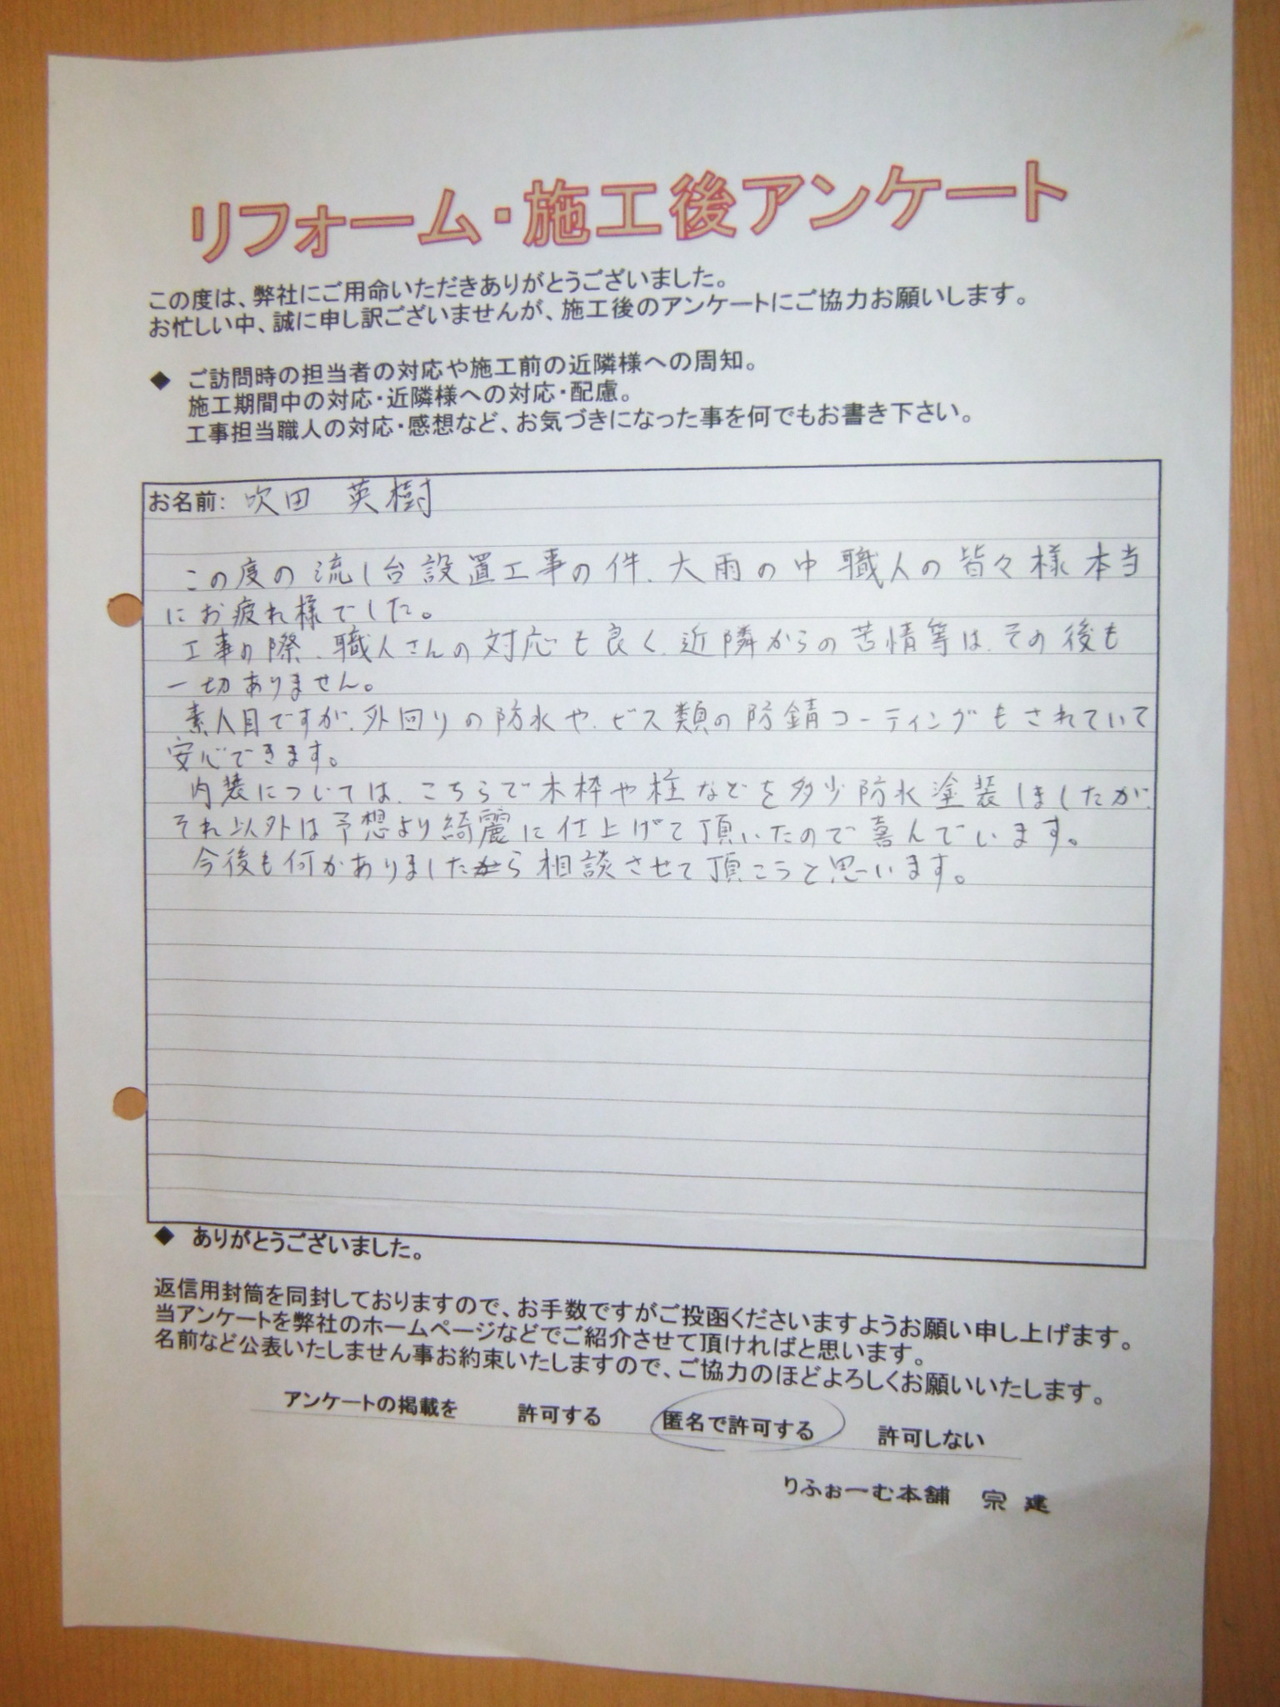 リフォーム・施工後アンケート
この度は、弊社にご用命いただきありがとうございました。
お忙しい中、誠に申し訳ございませんが、施工後のアンケートにご協力お願いします。
◆ ご訪問時の担当者の対応や施工前の近隣様への周知。
施工期間中の対応・近隣様への対応・配慮。
工事担当職人の対応・感想など、お気づきになった事を何でもお書き下さい。
お名前: 吹田 英樹
この度の流し台設置工事の件、大雨の中職人の皆々様本当
にお疲れ様でした。
工事の際、職人さんの対応も良く、近隣からの苦情等は、その後も
一切ありません。
素人目ですが、外回りの防水や、ビス類の防錆コーティングもされていて
安心できます。
内装については、こちらで木枠や柱などを多少防水塗装しましたが、
それ以外は予想より綺麗に仕上げて頂いたので喜んでいます。
今後も何かありましたから相談させて頂こうと思います。
◆ ありがとうございました。
返信用封筒を同封しておりますので、お手数ですがご投函くださいますようお願い申し上げます。
当アンケートを弊社のホームページなどでご紹介させて頂ければと思います。
名前など公表いたしません事お約束いたしますので、ご協力のほどよろしくお願いいたします。
アンケートの掲載を 許可する 匿名で許可する 許可しない
りふぉーむ本舗 宗建